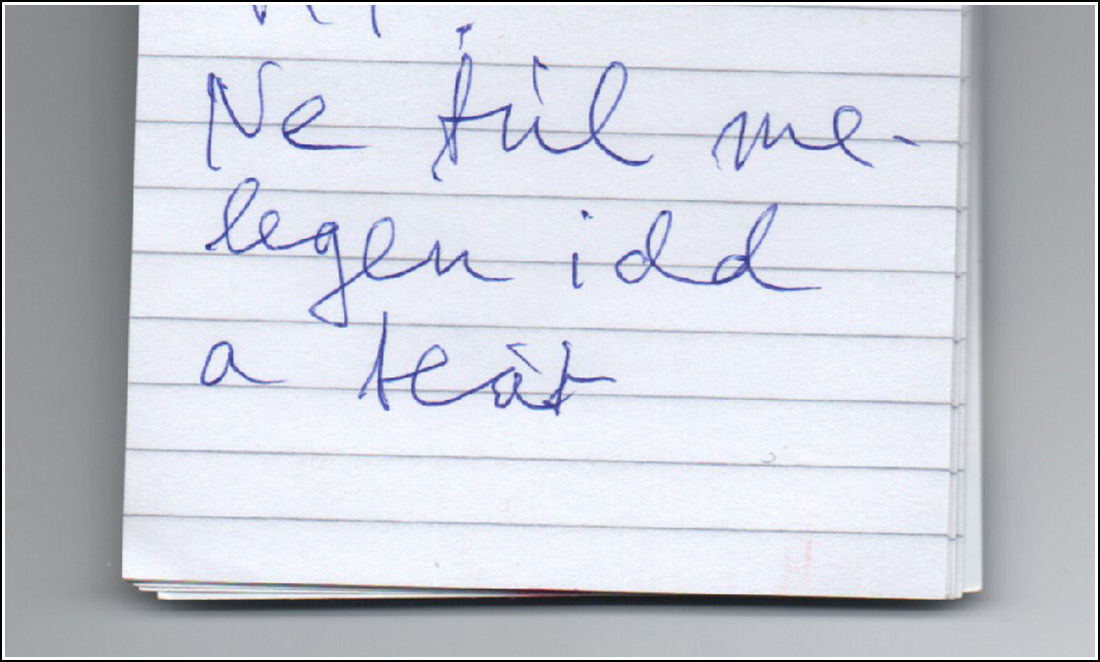 Ne túl me-
legen idd
a teát